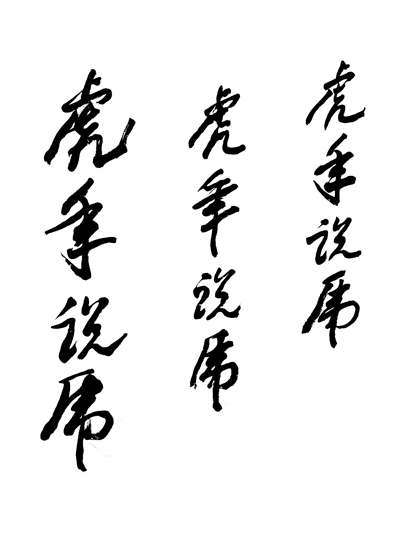 虎年说虎
虎年说虎
虎年说虎